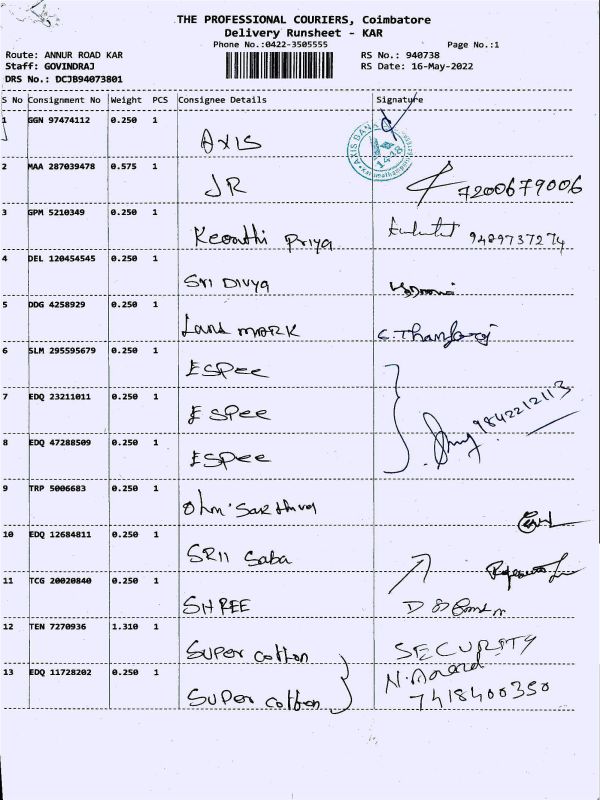 THE PROFESSIONAL COURIERS, Coimbatore
Delivery Runsheet - KAR
Phone No.:0422-3505555 Page No.:1
Route: ANNUR ROAD KAR RS No.: 940738
Staff: GOVINDRAJ RS Date: 16-May-2022
DRS No.: DCJB94073801
S No Consignment No Weight PCS Consignee Details Signature
1 GGN 97474112 0.250 1 AXIS AXIS BANK
2 MAA 287039478 0.575 1 JR 7200679006
3 GPM 5210349 0.250 1 Keerthi Priya 9489737274
4 DEL 120454545 0.250 1 Sri Divya
5 DDG 4258929 0.250 1 Land MARK C. Thangaraj
6 SLM 295595679 0.250 1 ESPee
7 EDQ 23211011 0.250 1 ESPee 9842212113
8 EDQ 47288509 0.250 1 ESPee
9 TRP 5006683 0.250 1 Ohm
10 EDQ 12684811 0.250 1 SRII Saba
11 TCG 20020840 0.250 1 SHREE
12 TEN 7270936 1.310 1 SUPER Cotton SECURITY
13 EDQ 11728202 0.250 1 SUPER Cotton N. Anand
7418400350